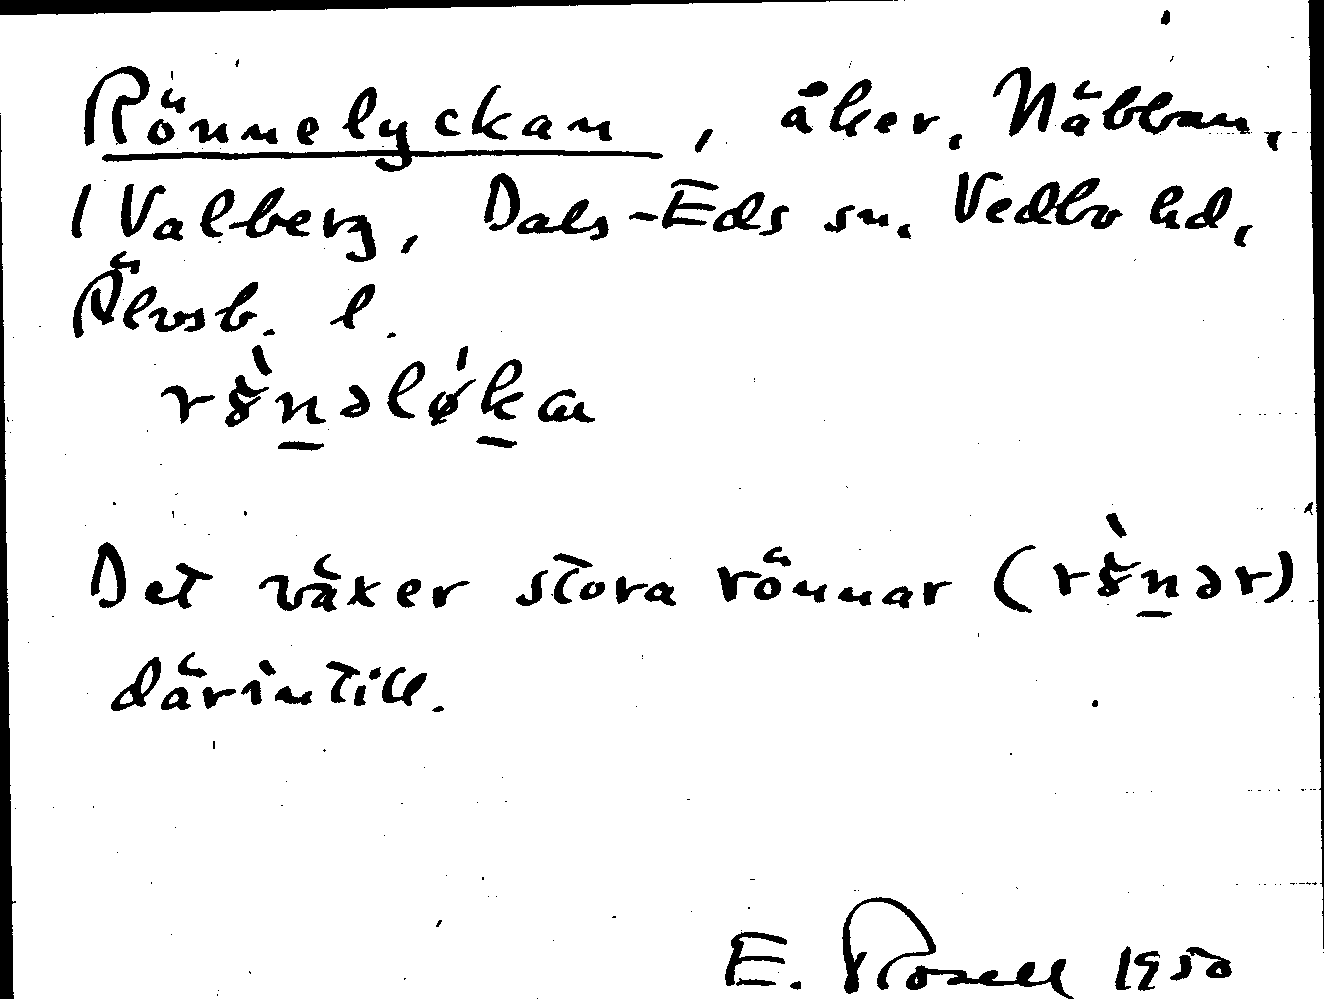 Rönnelyckan, åker. Näbban.
1 Valberg, Dals-Eds sn. Vedbo hd,
Älvsb. l.
Det växer stora rönnar
därintill.
E. Rosell 1950